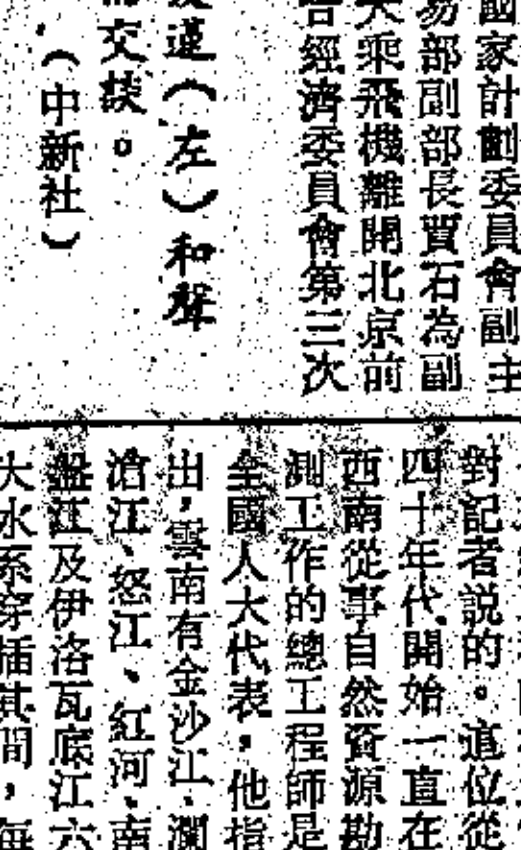 國家計劃委員會副主
易部副部長賈石為副
乘飛機離開北京前
經濟委員會第三次
遵（左）和聲
交談。
（中新社）
對記者説的。這位從
四十年代開始一直在
西南從事自然資源勘
測工作的總工程師是
全國人大代表，他指
出，雲南有金沙江、瀾
滄江、怒江、紅河、南
盤江及伊洛瓦底江六
大水系穿插其間，每